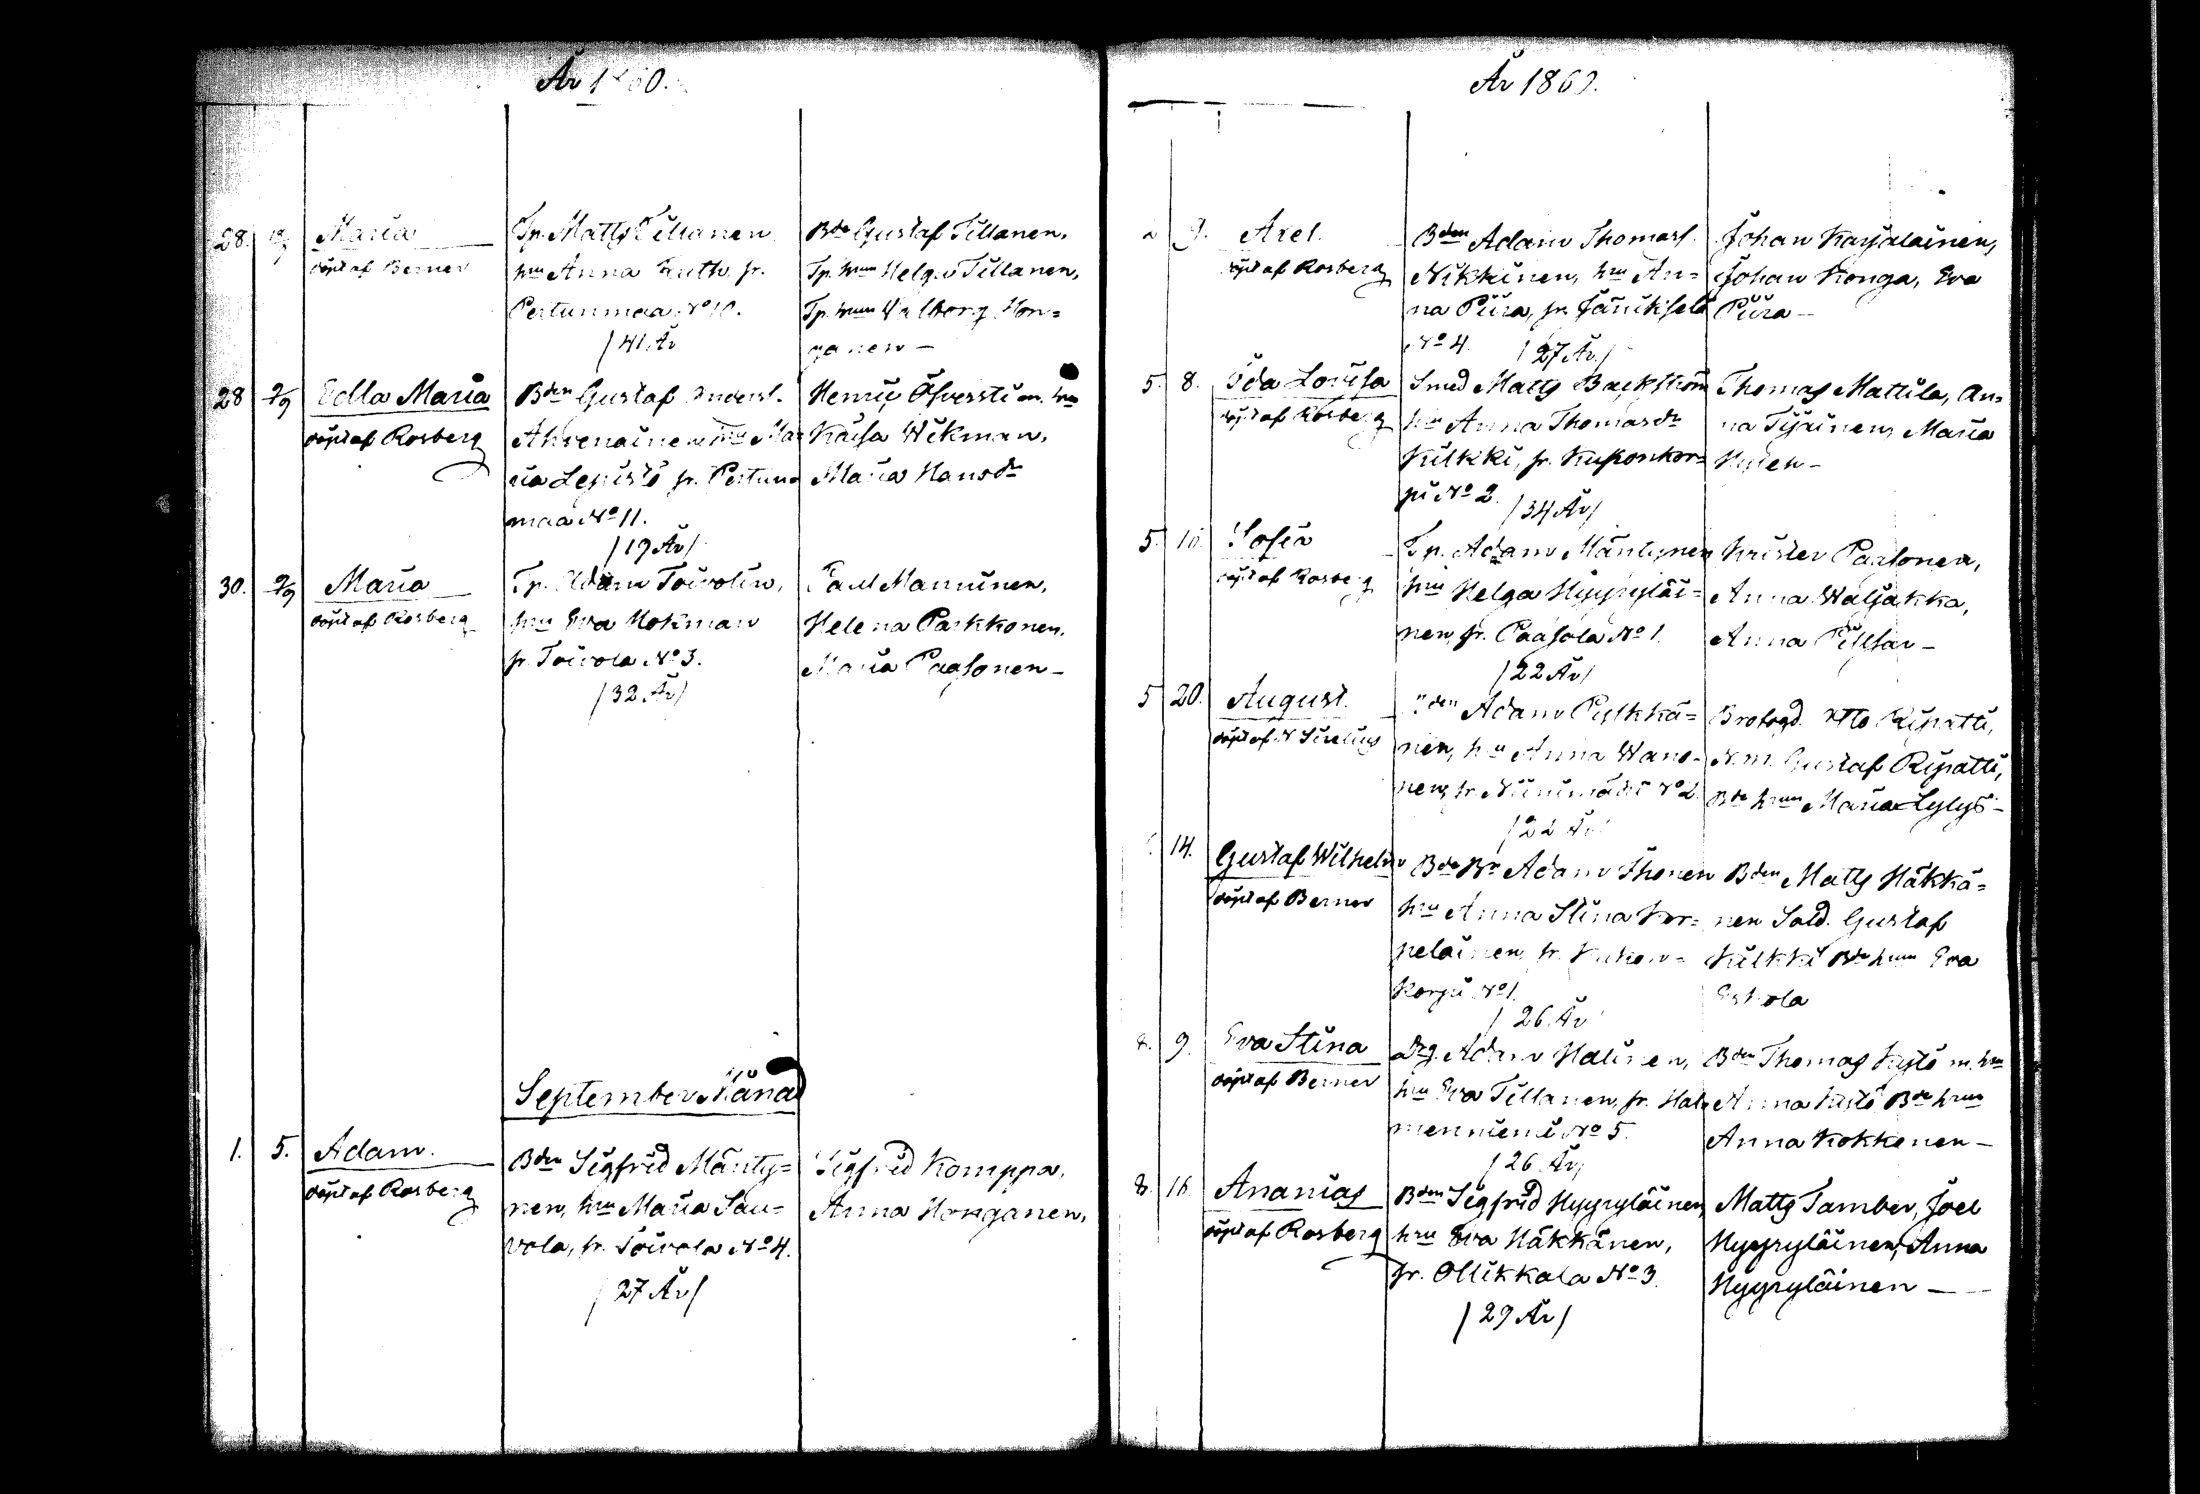 År 1860.
28. Maria
döpt af Berner
Tp. Matts Tillanen
hru Anna fr.
Pertunmaa No 10.
/41 År
Bde Gustaf Tillanen,
Tp. hrun Helga Tillanen,
Tp. hrun Walborg Hon=
ganen —
28 2/9 Edla Maria
döpt af Rosberg
Bden Gustaf Andersf.
Ahvenainen, hru Ma=
ria Lepistö fr. Pertun=
maa No 11.
/19 År/
Henric Öfverström. hru
Kaisa Wikman,
Maria Hansdr
30. 2/9 Maria
döpt af Rosberg
Tp. Adam Toivolin,
hru Eva Hokman
fr. Toivola No 3.
/32 År/
Paul Manninen,
Helena Parkkonen.
Maria Paasonen —
September Månad
1. 5. Adam.
döpt af Rosberg
Bden Sigfrid Mänty=
nen, hru Maria Sau=
vola, fr. Toivola No 4.
/27 År/
Sigfrid Komppa,
Anna Honganen,
År 1860.
9. Axel.
döpt af Rosberg
Bden Adam Thomasf.
Nikkinen, hru An=
na Piira, fr.
No 4. /27 År/
Johan Karjalainen,
Johan Konga, Eva
Piira —
5. 8. Ida Lovisa
döpt af Rosberg
Smed Matts Backström
hru Anna Thomasdr
Kilkki, fr. Kuhonkor=
pi No 2. /34 År/
Thomas Mattila, An=
na Tijainen, Maria
5. Sofia
döpt af Rosberg
Tp. Adam Mäntynen
hru Helga Hyyryläi=
nen, fr. Paasola No 1.
/22 År/
Krister Paasonen,
Anna Waljakka,
Anna
5 20. August.
döpt af N Sirelius
Adam Pylkkä=
nen, hru Anna Wano=
nen, fr. Niinimäki No 2.
/22 År/
Brofogd. Otto Ripatti,
N.m. Gustaf Ripatti,
Bde hrun Maria Lylys —
14. Gustaf Wilhelm
döpt af Berner
Bde Br Adam Ihonen
hru Anna Stina Kor=
pelainen, fr. Kuhon=
korpi No 1.
/26 År
Bden Matts Häkkä=
nen Sold. Gustaf
Kilkki Bde hrun Eva
Eskola
8. 9. Eva Stina
döpt af Berner
Adam Halinen,
hru Eva Tillanen, fr. Hal=
menniemi No 5.
/26 År/
Bden Thomas Kystö m. hru
Anna Kystö Bde hrun
Anna Kokkonen —
8. 16. Ananias
döpt af Rosberg
Bden Sigfrid Hyyryläinen,
hru Eva Häkkänen,
fr. Ollikkala No 3.
/29 År/
Matts Tamber, Joel
Hyyryläinen, Anna
Hyyryläinen —